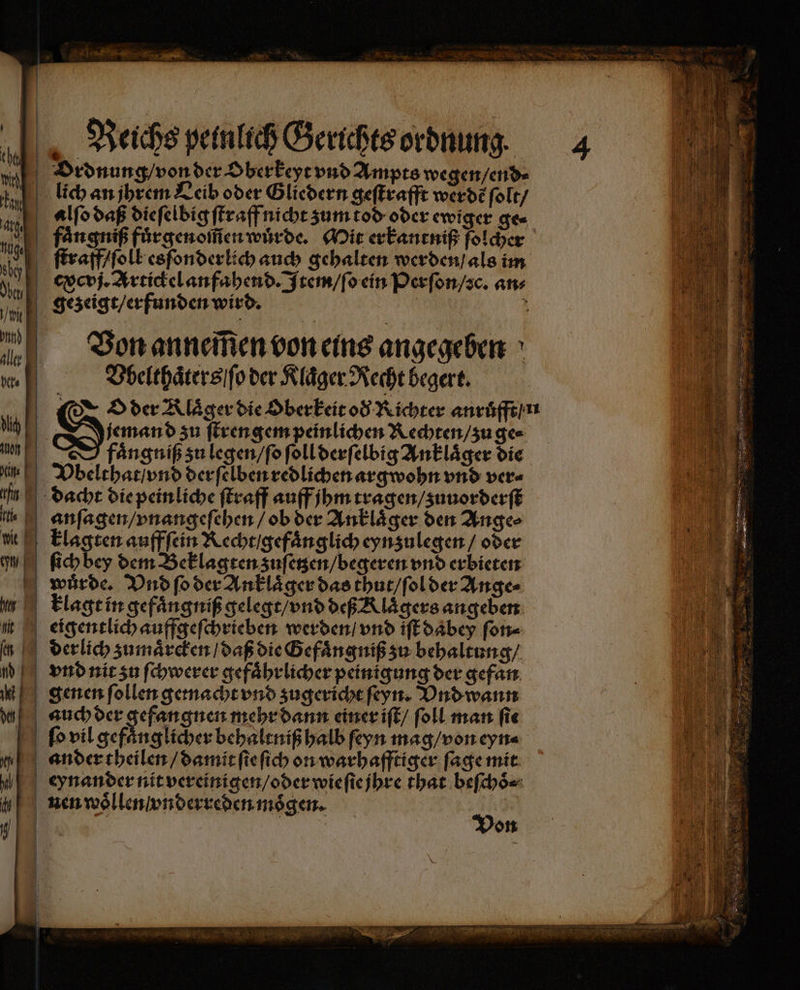 Reichs peinlich Gerichts ordnung. 4
Ordnung/von der Oberkeyt vnd Ampts wegen/end⸗
lich an jhrem Leib oder Gliedern geſtrafft werdẽ ſolt/
alſo daß dieſelbig ſtraff nicht zum tod oder ewiger ge⸗
faͤngniß fuͤrgenom̃en wuͤrde. Mit erkantniß ſolcher
ſtraff/ſoll es ſonderlich auch gehalten werden/als im
cxcvj. Artickel anfahend. Item/ſo ein Perſon/ꝛc. an⸗
gezeigt/erfunden wird.
Von annem̃en von eins angegeben
Vbelthaͤters/ſo der Klaͤger Recht begert.
SO der Klaͤger die Oberkeit oď Richter anruͤfft/
jemand zu ſtrengem peinlichen Rechten/zu ge⸗
faͤngniß zu legen/ſo ſoll derſelbig Anklaͤger die
Vbelthat/vnd derſelben redlichen argwohn vnd ver⸗
dacht die peinliche ſtraff auff jhm tragen/zuuorderſt
anſagen/vnangeſehen/ob der Anklaͤger den Ange⸗
klagten auff ſein Recht/gefaͤnglich eynzulegen/oder
ſich bey dem Beklagten zuſetzen/begeren vnd erbieten
wuͤrde. Vnd ſo der Anklaͤger das thut/ſol der Ange⸗
klagt in gefaͤngniß gelegt/vnd deß Klaͤgers angeben
eigentlich auffgeſchrieben werden/vnd iſt dabey ſon⸗
derlich zumaͤrcken/daß die Gefaͤngniß zu behaltung/
vnd nit zu ſchwerer gefaͤhrlicher peinigung der gefan
genen ſollen gemacht vnd zugericht ſeyn. Vnd wann
auch der gefangnen mehr dann einer iſt/ſoll man ſie
ſo vil gefaͤnglicher behaltniß halb ſeyn mag/von eyn⸗
ander theilen/damit ſie ſich on warhafftiger ſage mit
eynander nit vereinigen/oder wie ſie jhre that beſchoͤ⸗
nen woͤllen/vnderreden moͤgen.
Von